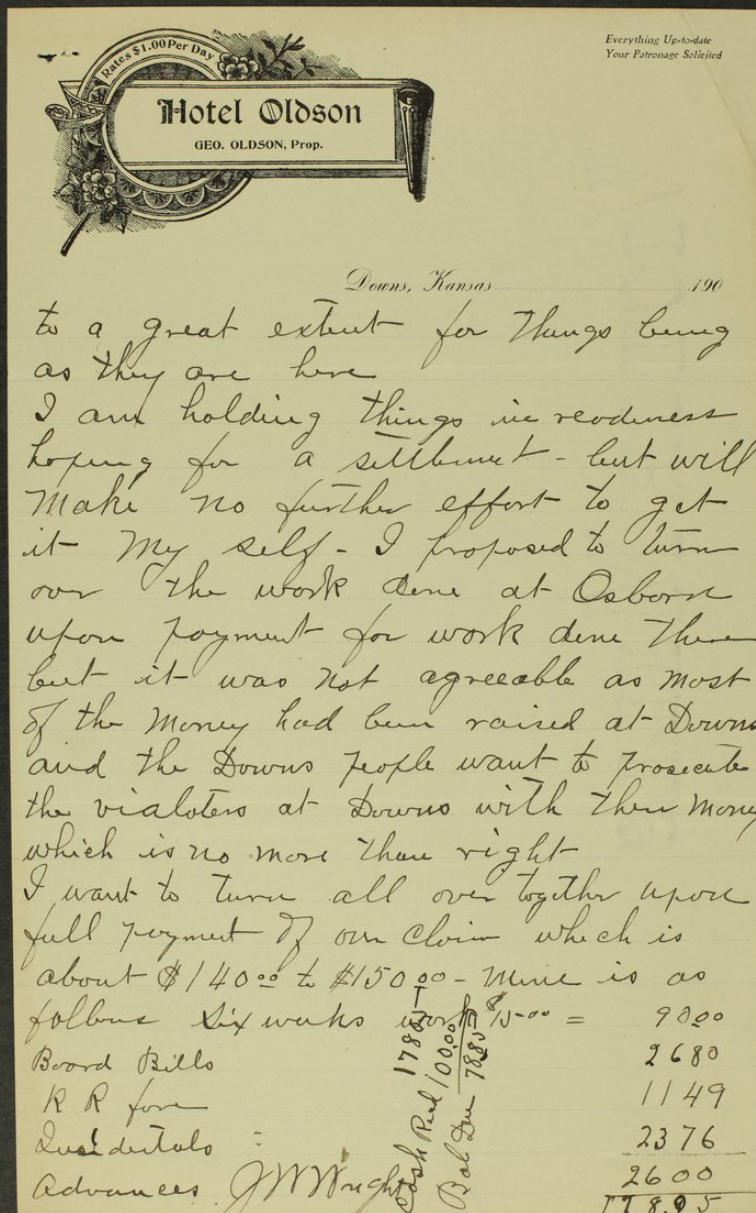 Rates $1.00 Per Day
Hotel Oldson
GEO. OLDSON, Prop.
Everything Up-to-date
Your Patronage Solicited
Downs, Kansas 190
to a great extent for things being
as they are here
I am holding things in readiness
hoping for a sittlement - but will
make no further effort to get
it my self - I proposed to turn
over the work done at Osborn
upon payment for work done there
but it was not agreeable as most
of the money had been raised at Downs
and the Downs people want to prosecute
the vialoters at Downs with their money
which is no more than right
I want to turn all over together upon
full payment of our claim which is
about $140.00 to $150.00 - Mine is as
follows Six weeks work $15.00 = 90.00
Board Bills 26 80
R R fare 11 49
Incidentals 23 76
Advances J W Wright 26 00
178.05
178.05
Cash Recd 100.00
Bal Due 78.05